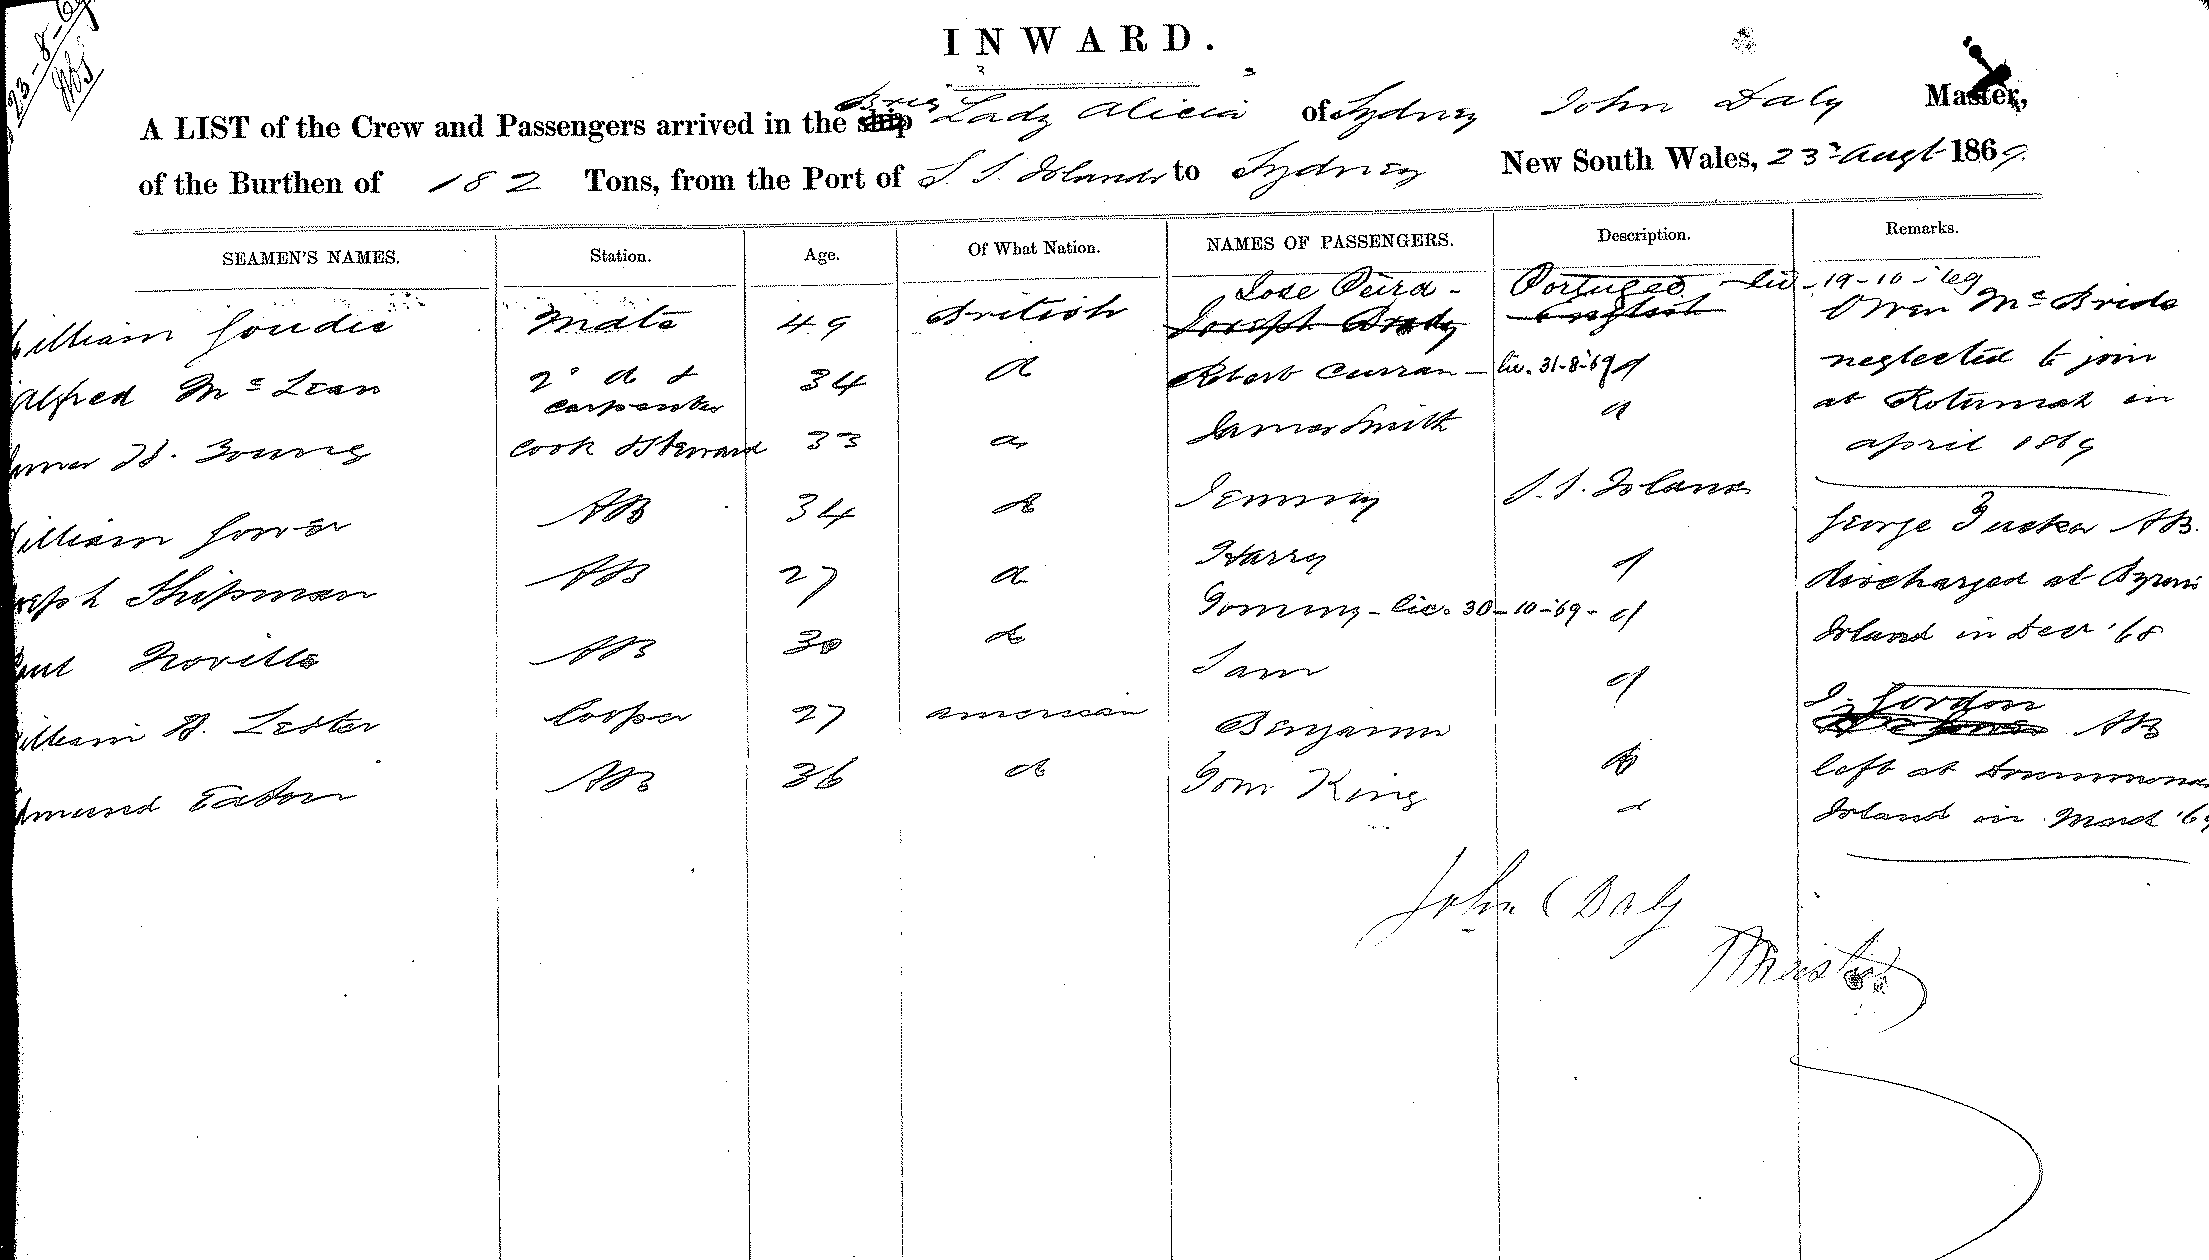 23-8-69
INWARD.
A LIST of the Crew and Passengers arrived in the ship Brig Lady Alicia of Sydney John Daly Master,
of the Burthen of 182 Tons, from the Port of S. S. Islands to Sydney New South Wales, 23rd Augt 1869.
SEAMEN'S NAMES. Station. Age. Of What Nation. NAMES OF PASSENGERS. Description. Remarks.
Jose Portugee - lic - 19-10-'69
William Goudie Mate 49 British Joseph Brady English Owen McBride
Alfred McLean 2d d & 34 d Robert Curran - lic. 31-8-'69 d neglected to join
carpenter
H. Young Cook & Steward 33 d James Smith d at Rotumah in
april 1869
William Gower AB 34 d Jemmy S. S. Island George Tucker AB.
Joseph Shipman AB 27 d Harry d discharged at Byrons
Tommy - lic. 30-10-'69 - d
Neville AB 30 d Sam d Island in Decr '68
William H. Lester Cooper 27 american Benjamin d J. Gordon AB
Edmund Eaton AB 36 d Tom King d left at Drummond
Island in March '69
John C Daly
Master